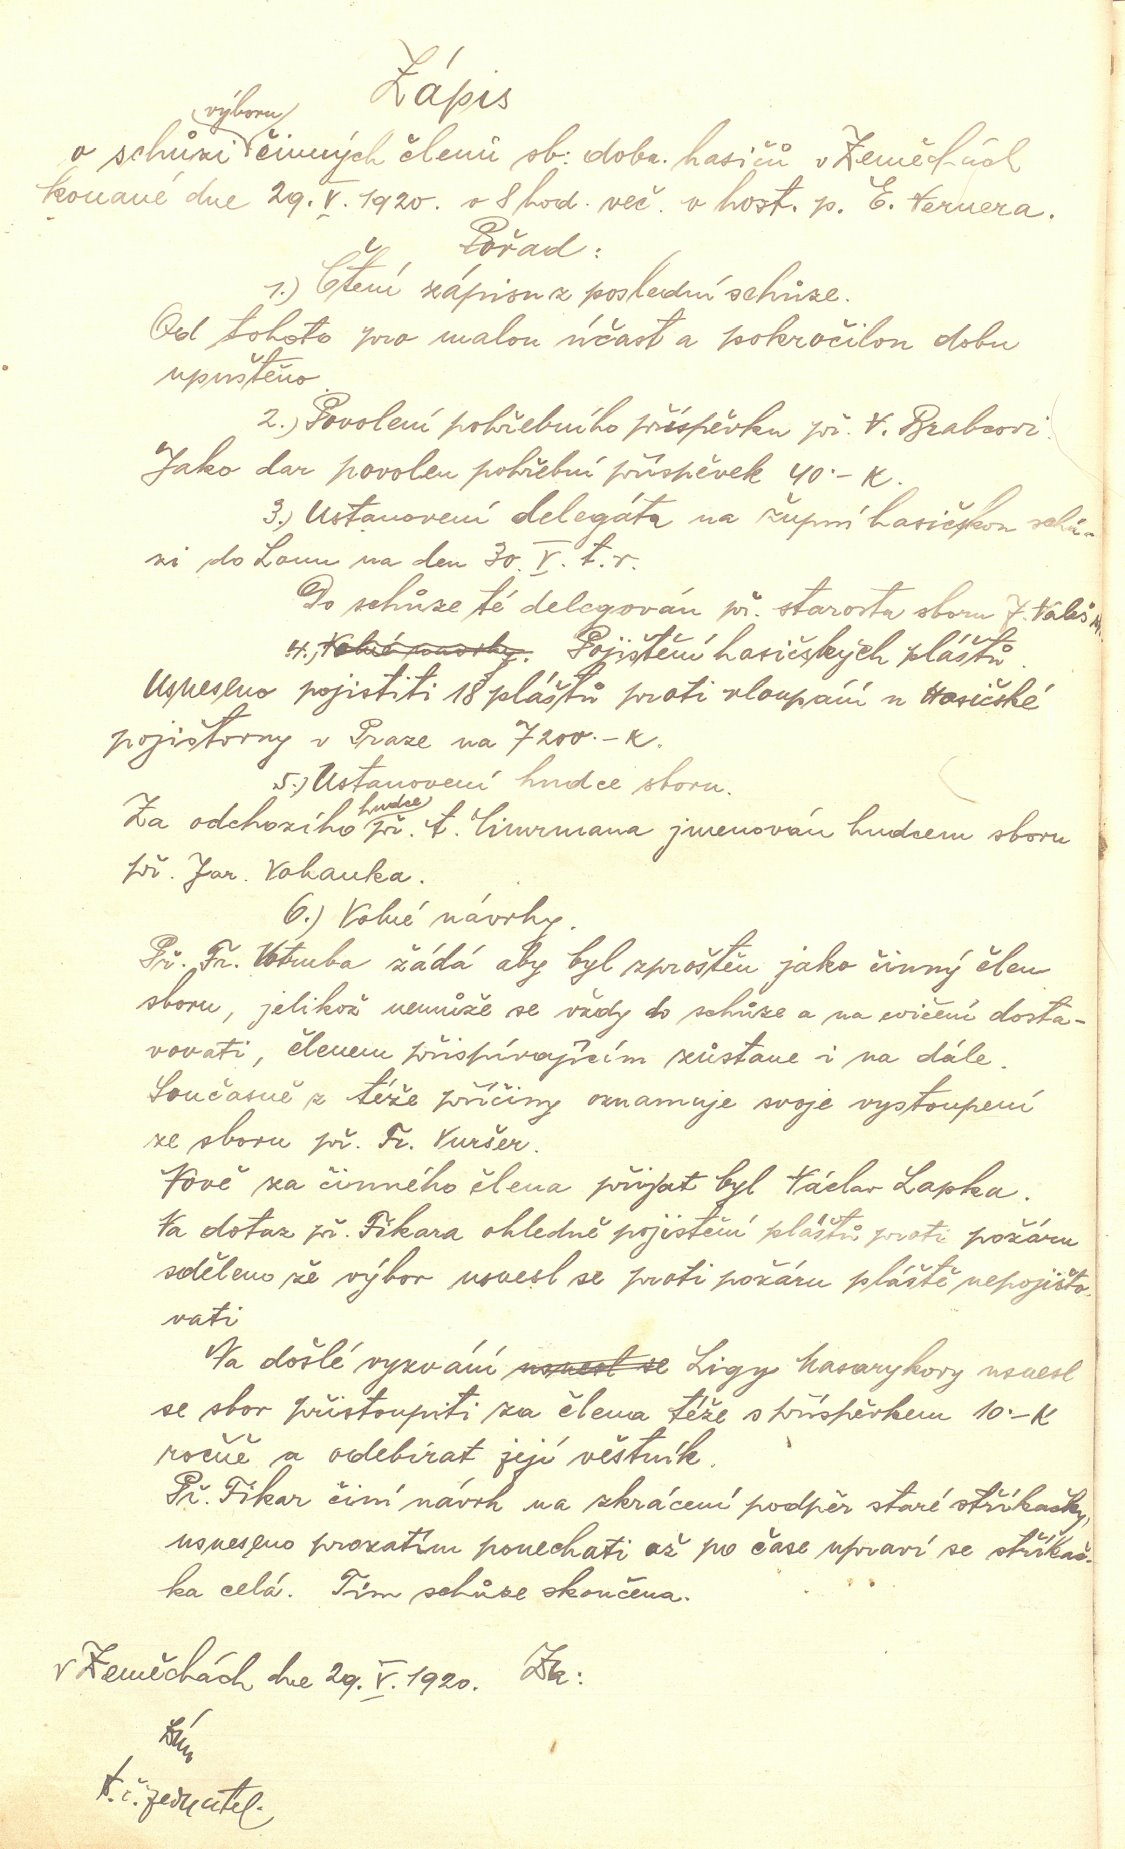 Zápis
výboru
o schůzi činných členů sb: dobr. hasičů v Zeměchách
konané dne 29. V. 1920. o 8 hod. več. v host. p. E. Vernera.
Pořad:
1.) Čtení zápisu z poslední schůze.
Od tohoto pro malou účast a pokročilou dobu
upuštěno.
2.) Povolení pohřebního příspěvku př. V. Brabcovi.
Jako dar povolen pohřební příspěvek 40·– K.
3.) Ustanovení delegáta na župní hasičskou schů-
zi do Loun na den 30. V. t. r.
Do schůze té delegován př. starosta sboru J. Valeš
4.) Volné návrhy. Pojištění hasičských pláštů.
Usneseno pojistiti 18 pláštů proti vloupání u Hasičské
pojištovny v Praze na 7200·– K.
5.) Ustanovení hudce sboru.
hudce
Za odchozího př. t. Cimrmana jmenován hudcem sboru
př. Jar. Vohanka.
6.) Volné návrhy.
Př. Fr. Votruba žádá aby byl zproštěn jako činný člen
sboru, jelikož nemůže se vždy do schůze a na cvičení dosta-
vovati, členem přispívajícím zůstane i na dále.
Současně z téže příčiny oznamuje svoje vystoupení
ze sboru př. Fr. Vuršer.
Nově za činného člena přijat byl Václav Lapka.
Na dotaz př. Fikara ohledně pojistění pláštů proti požáru
sděleno že výbor usnesl se proti požáru pláště nepojišto-
vati
Na došlé vyzvání usnesl se Ligy Masarykovy usnesl
se sbor přistoupiti za člena téže s příspěvkem 10·– K
ročně a odebírat její věstník.
Př. Fikar činí návrh na zkrácení podpěr staré stříkačky,
usneseno prozatím ponechati až po čase upraví se stříkač-
ka celá. Tím schůze skončena.
v Zeměchách dne 29. V. 1920. Za:
t. č. jednatel.